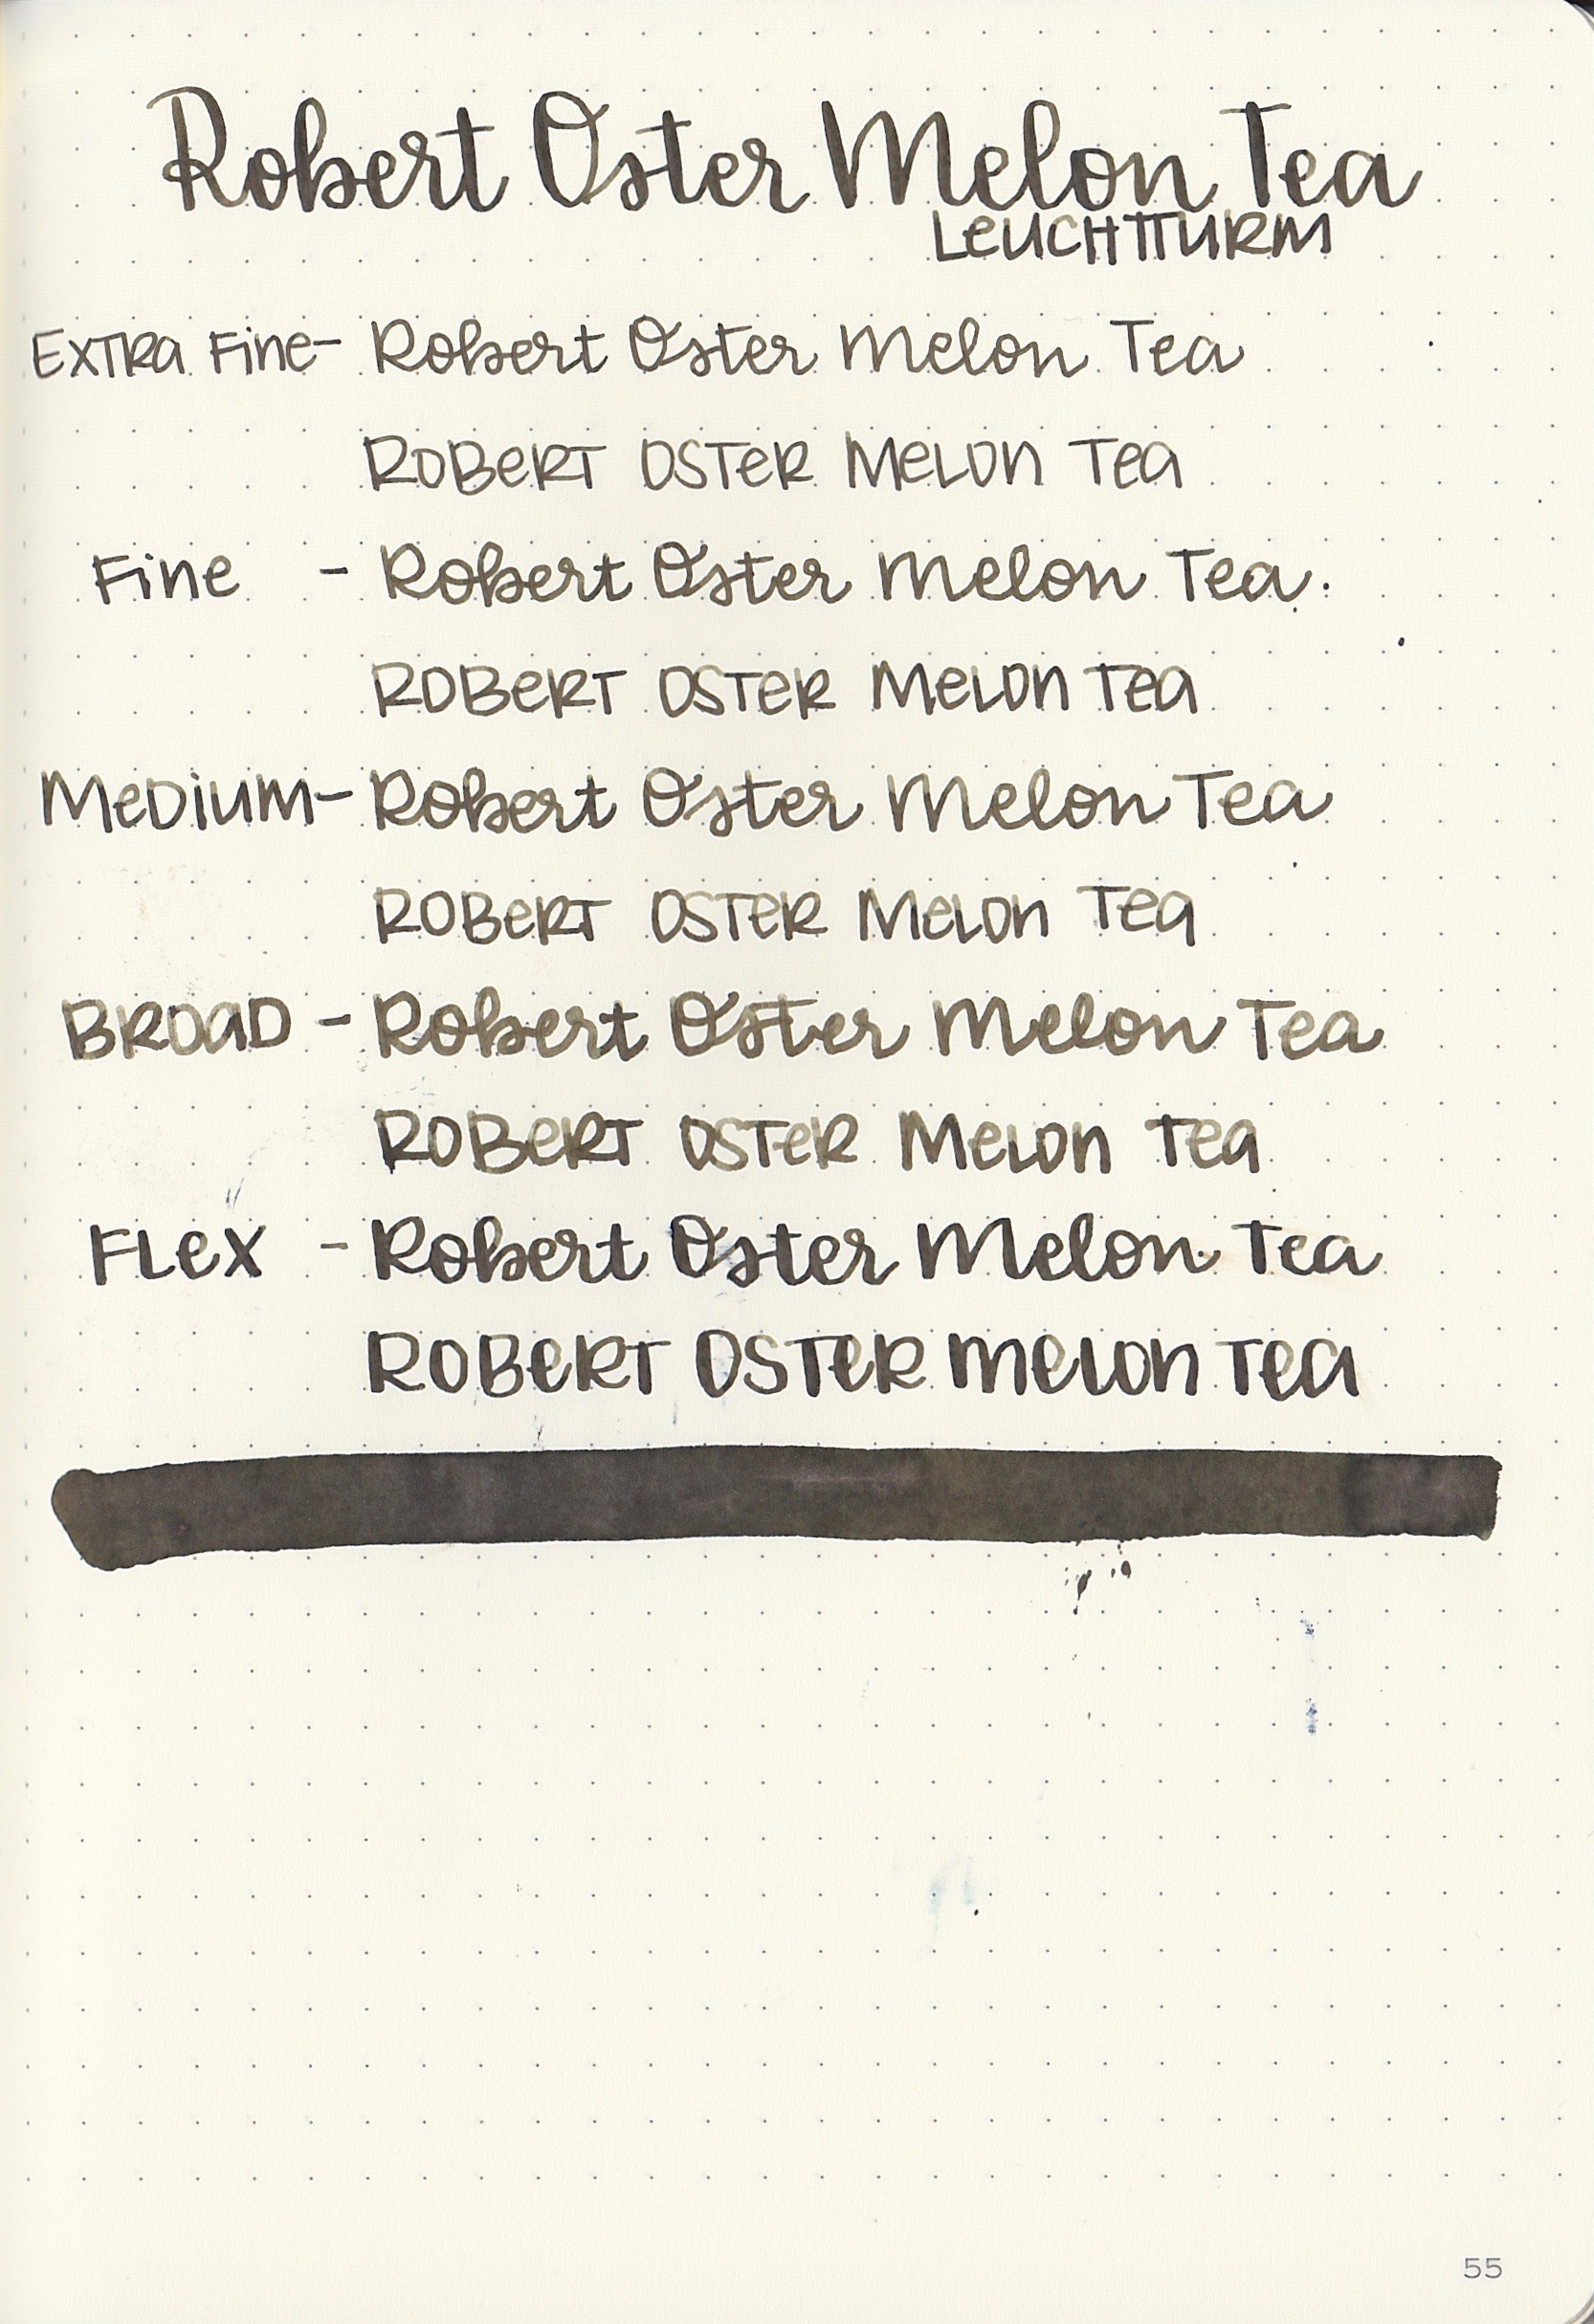 Robert Oster Melon Tea
LEUCHTTURM
EXTRA FINE- Robert Oster Melon Tea
ROBERT OSTER MELON TEA
FINE - Robert Oster Melon Tea.
ROBERT OSTER MELON TEA
MEDIUM- Robert Oster Melon Tea
ROBERT OSTER MELON TEA
BROAD - Robert Oster Melon Tea
ROBERT OSTER MELON TEA
FLEX - Robert Oster Melon Tea
ROBERT OSTER MELON TEA
55